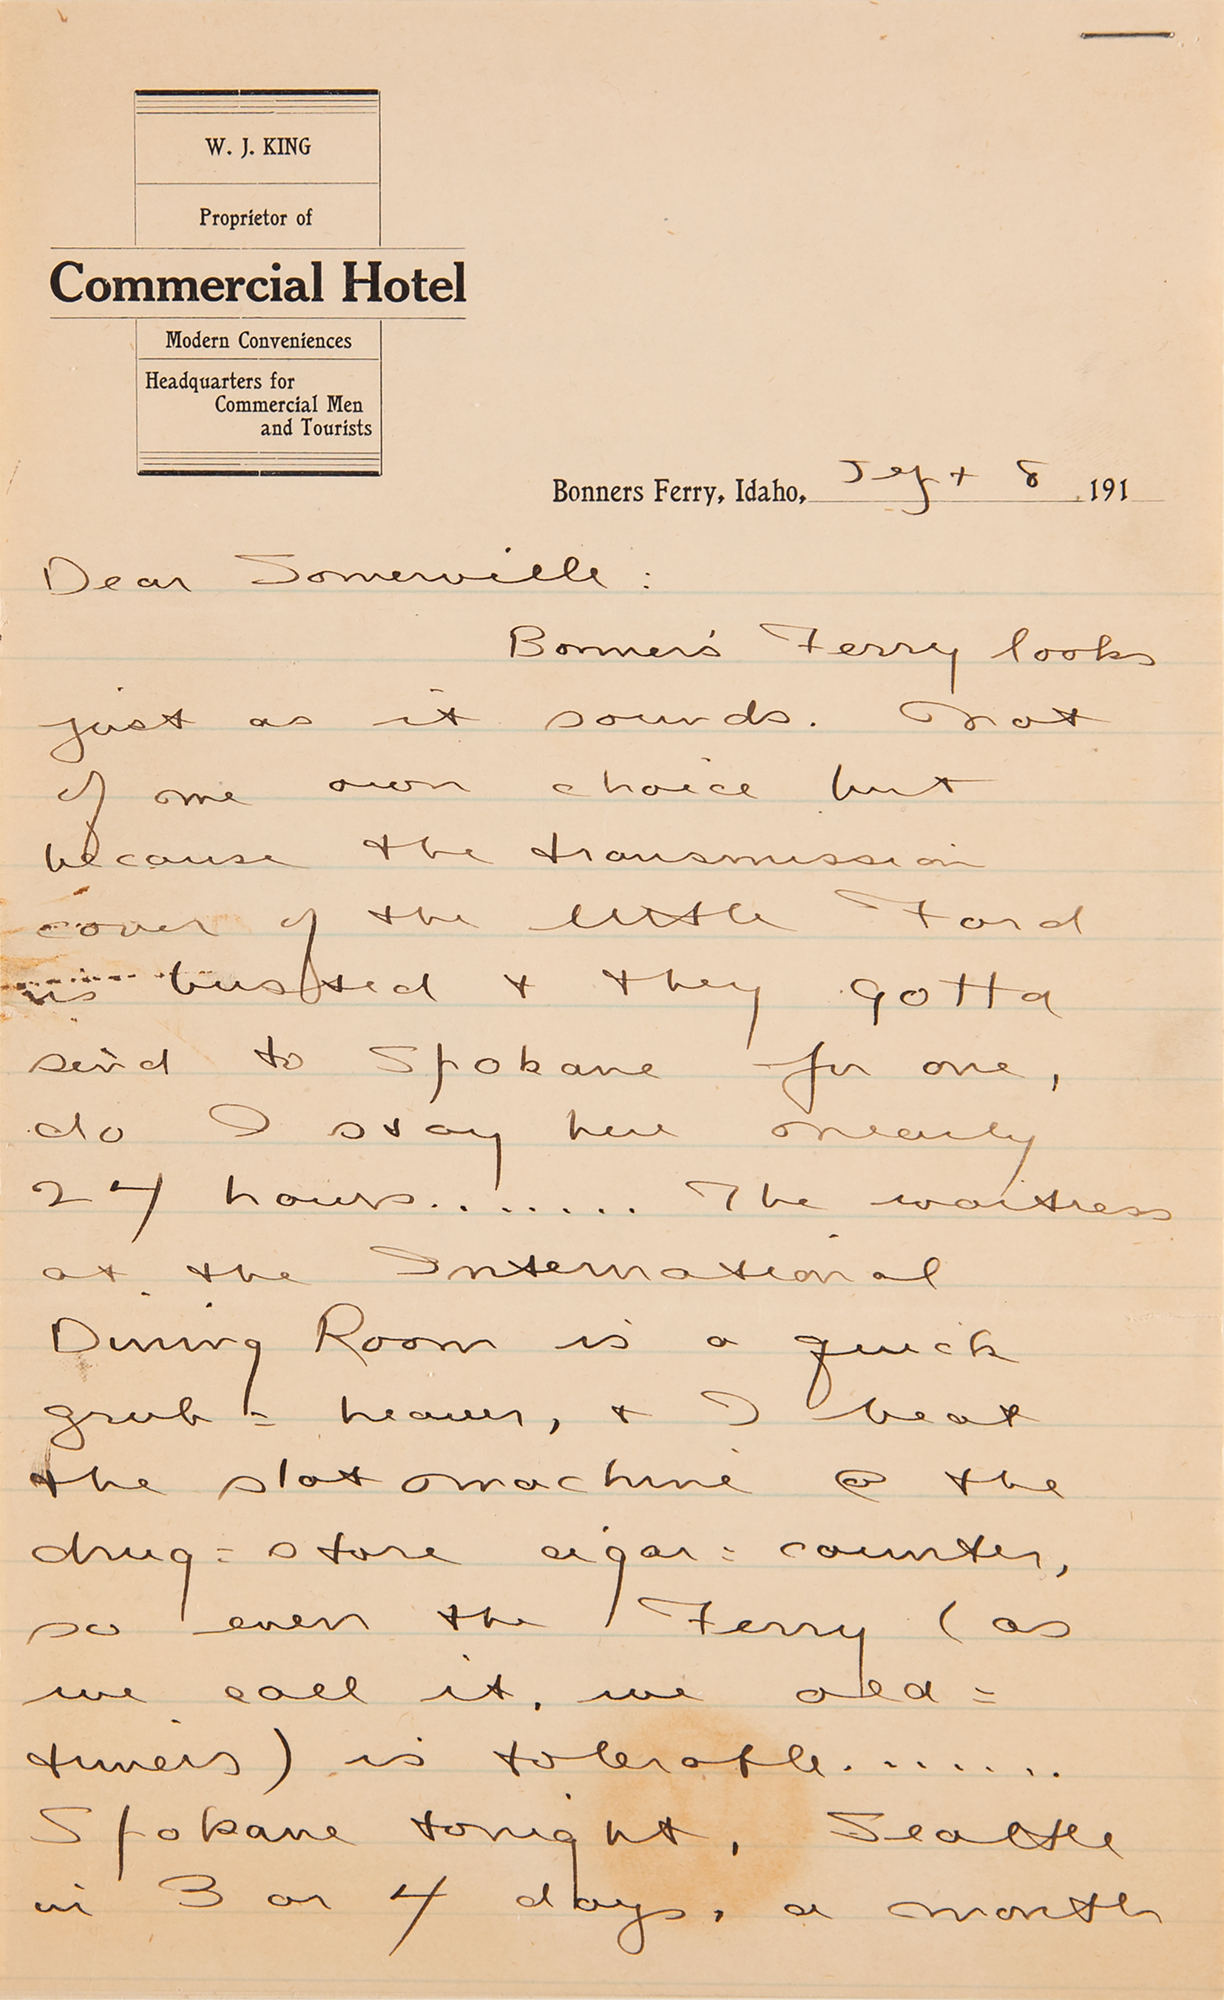 W. J. KING
Proprietor of
Commercial Hotel
Modern Conveniences
Headquarters for
Commercial Men
and Tourists
Bonners Ferry, Idaho, Sept 8 191
Dear Somerville:
Bonner's Ferry looks
just as it sounds. Not
of me own choice but
because the transmission
cover of the little Ford
is busted & they gotta
send to Spokane for one,
do I stay here nearly
24 hours........ The waitress
at the International
Dining Room is a quick
grub=heaver, & I beat
the slot machine @ the
drug=store cigar=counter,
so even the Ferry (as
we call it, we old=
timers) is tolerable.......
Spokane tonight, Seattle
in 3 or 4 days, a month